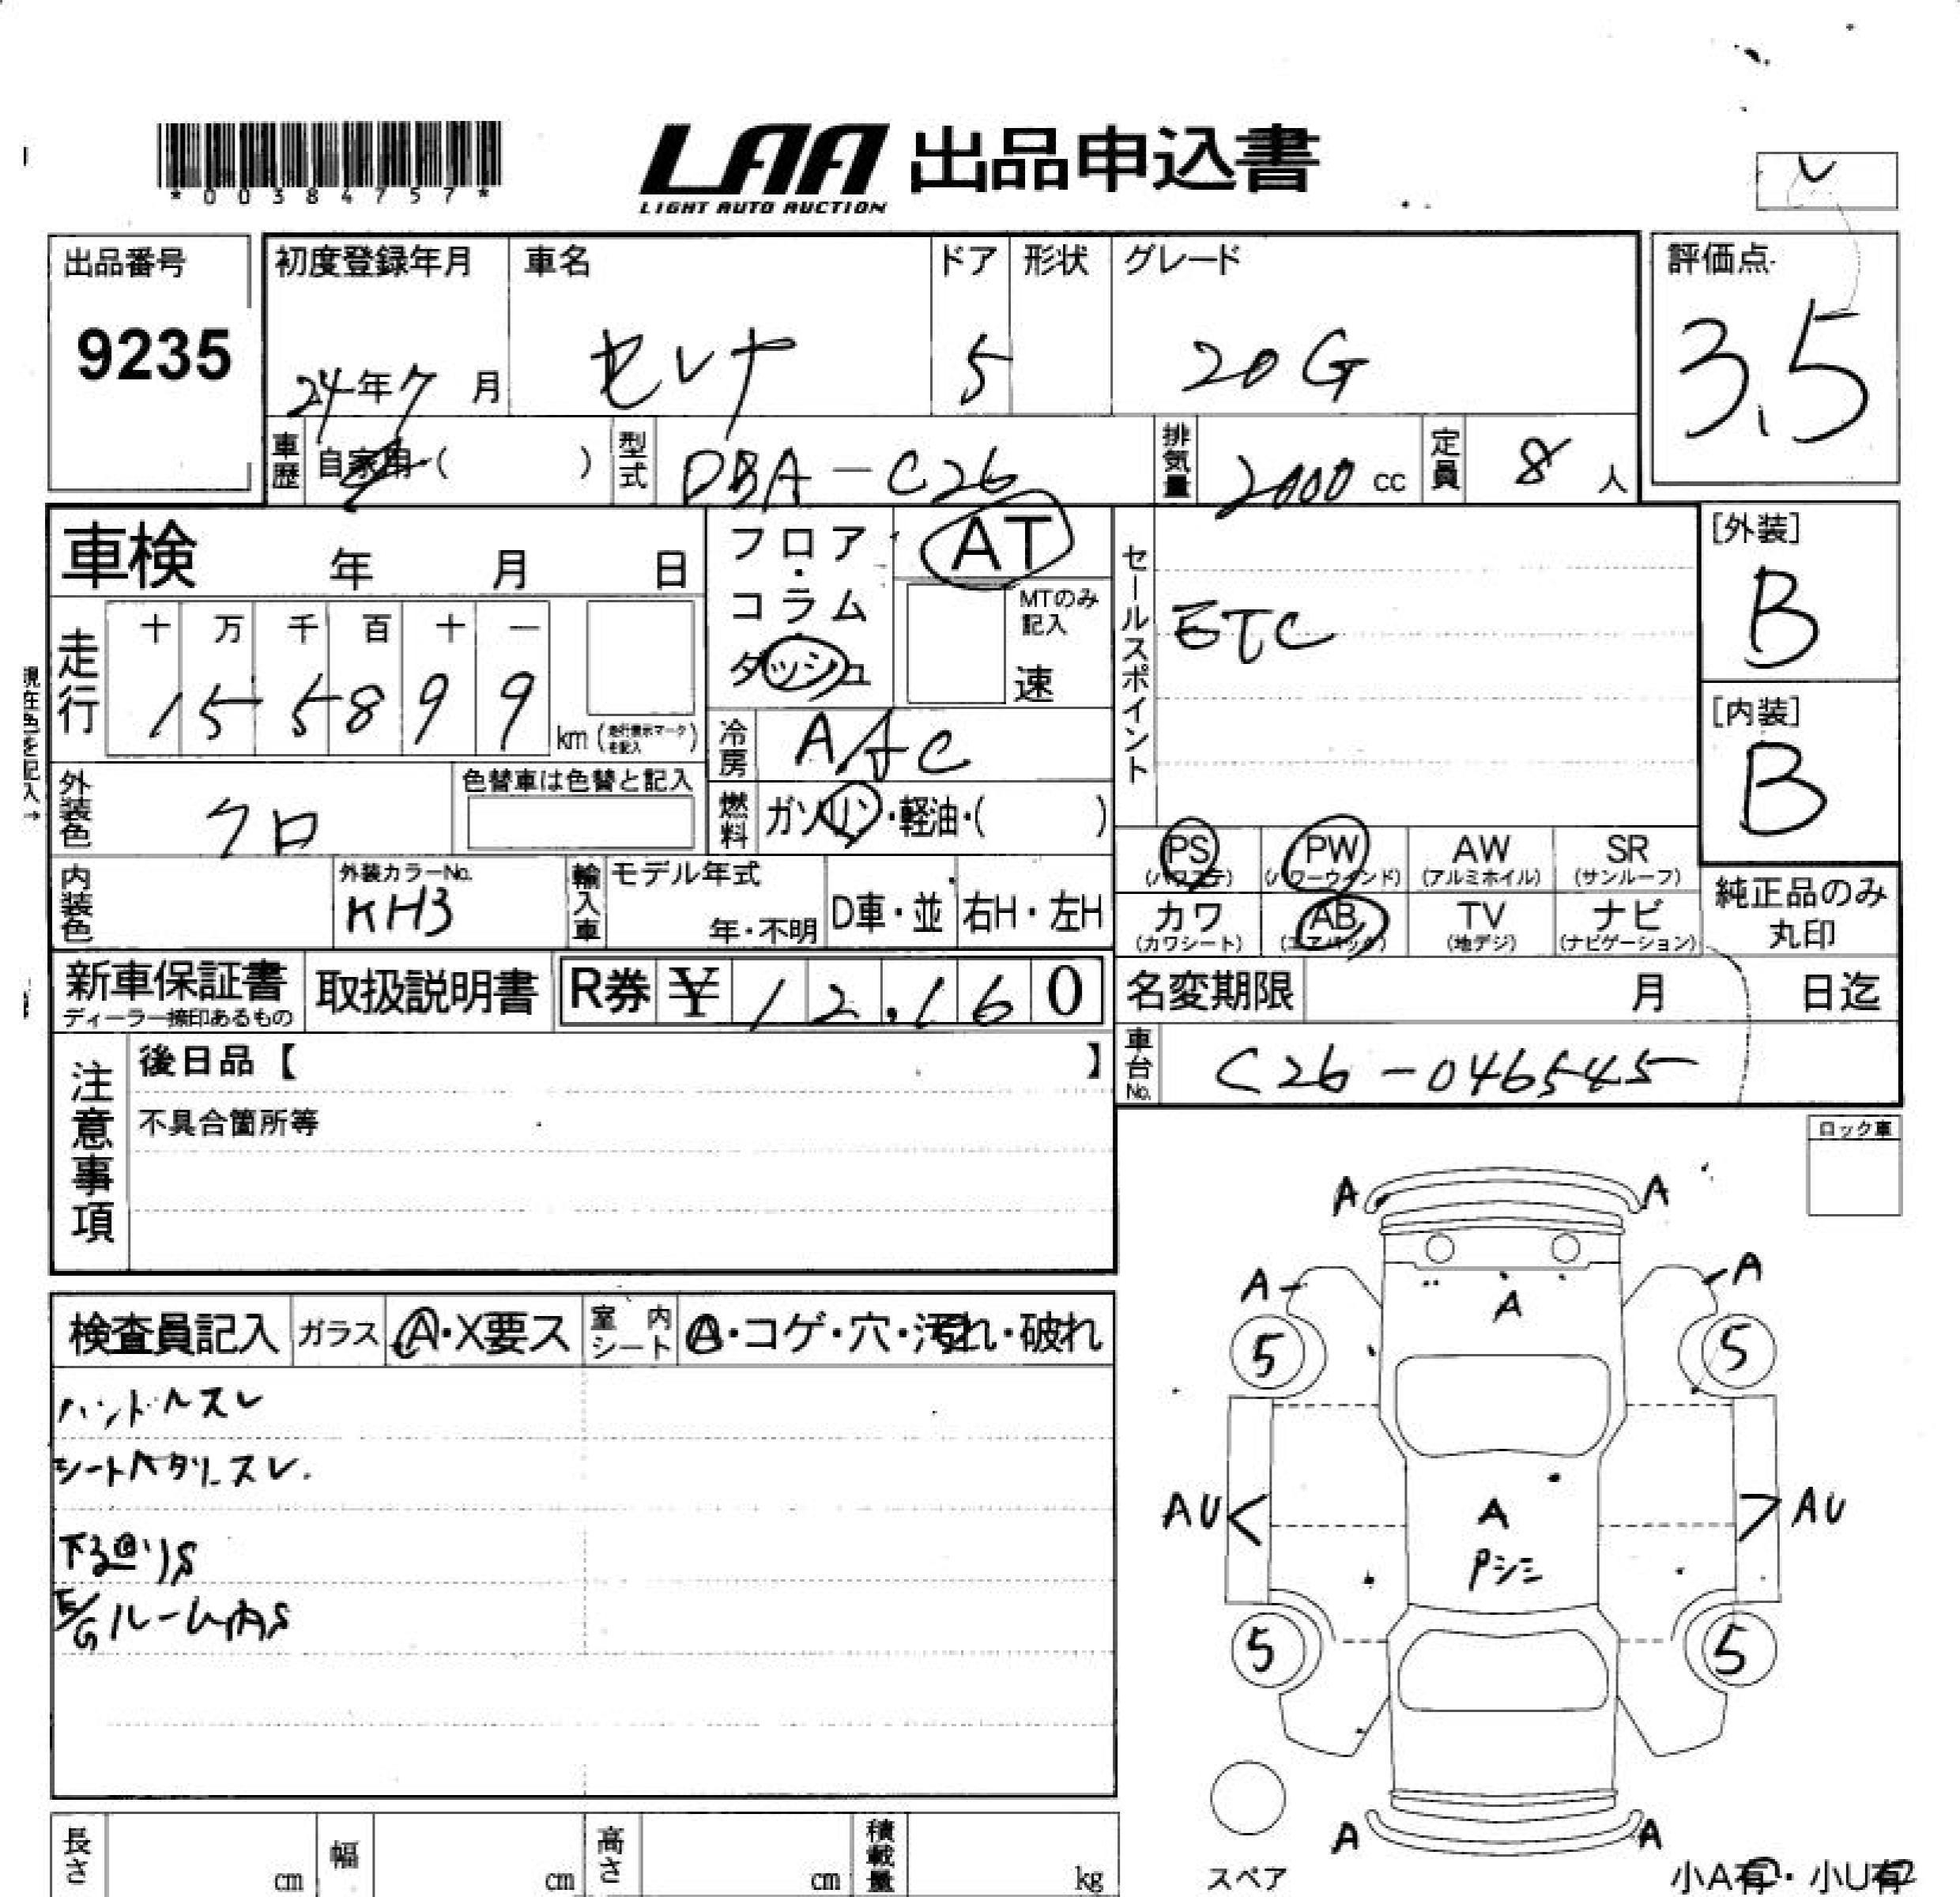 *00384757*
LAA 出品申込書
LIGHT AUTO AUCTION
出品番号
9235
初度登録年月
24年7月
車名
セレナ
ドア
5
形状
グレード
20G
評価点
3.5
車歴
自家用・( )
型式
DBA-C26
排気量
2000cc
定員
8人
車検 年 月 日
フロア・コラム
ダッシュ
AT
MTのみ記入
速
セールスポイント
ETC
[外装]
B
[内装]
B
走行
十 万 千 百 十 一
1 5 5 8 9 9
km (走行表示マークを記入)
冷房
AAC
現在色を記入→
外装色
クロ
色替車は色替と記入
燃料
ガソリン・軽油・( )
PS
(パワステ)
PW
(パワーウインド)
AW
(アルミホイル)
SR
(サンルーフ)
カワ
(カワシート)
AB
(エアバック)
TV
(地デジ)
ナビ
(ナビゲーション)
純正品のみ
丸印
内装色
外装カラーNo.
KH3
輸入車
モデル年式
年・不明
D車・並
右H・左H
新車保証書
ディーラー捺印あるもの
取扱説明書
R券 ¥ 12,160
名変期限 月 日迄
車台No.
C26-046545
注意事項
後日品【 】
不具合箇所等
ロック車
検査員記入
ガラス
A・X要ス
室内シート
A・コゲ・穴・汚れ・破れ
ハンドルスレ
シートヘタリ、スレ.
下廻りS
E/Gルーム内S
A A
A A
A
5 5
AU AU
A
Pシミ
5 5
A A
スペア
小A有・小U有
長さ cm
幅 cm
高さ cm
積載量 kg